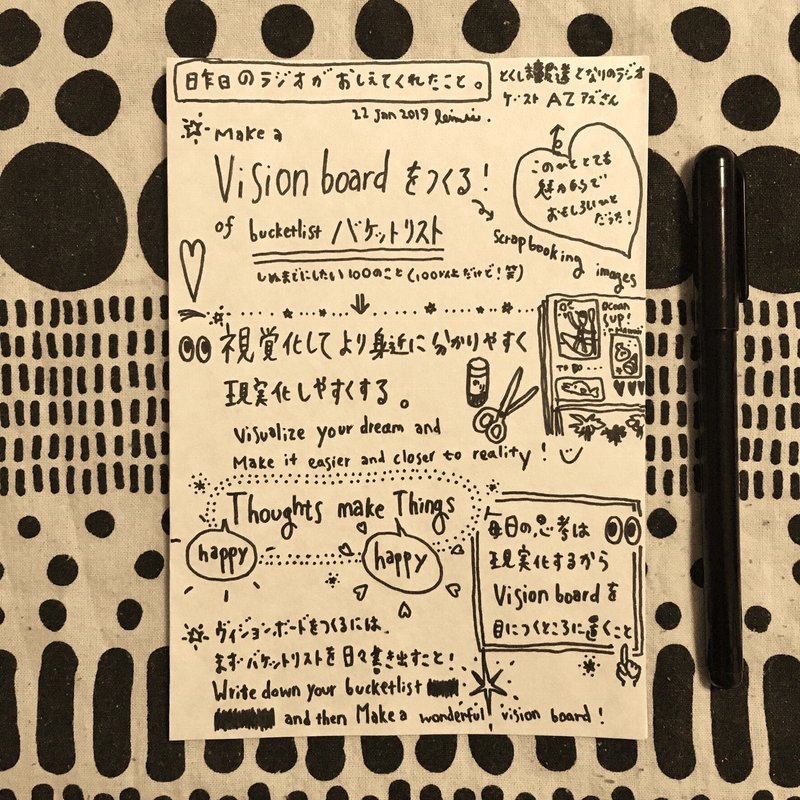 昨日のラジオがおしえてくれたこと。
となりのラジオ
ゲスト AZ アズさん
22 Jan 2019
Make a
Vision board をつくる!
of bucketlist バケットリスト
しぬまでにしたい100のこと(100以上だけど!笑)
このひととても
魅力的で
おもしろいひと
だった!
Scrapbooking images
Ocean
SUP!
TO DO
視覚化してより身近に分かりやすく
現実化しやすくする。
Visualize your dream and
Make it easier and closer to reality!
Thoughts make Things
happy
happy
毎日の思考は
現実化するから
Vision board を
目につくところに置くこと
ヴィジョンボードをつくるには、
まずバケットリストを日々書き出すこと!
Write down your bucketlist
and then Make a wonderful vision board!